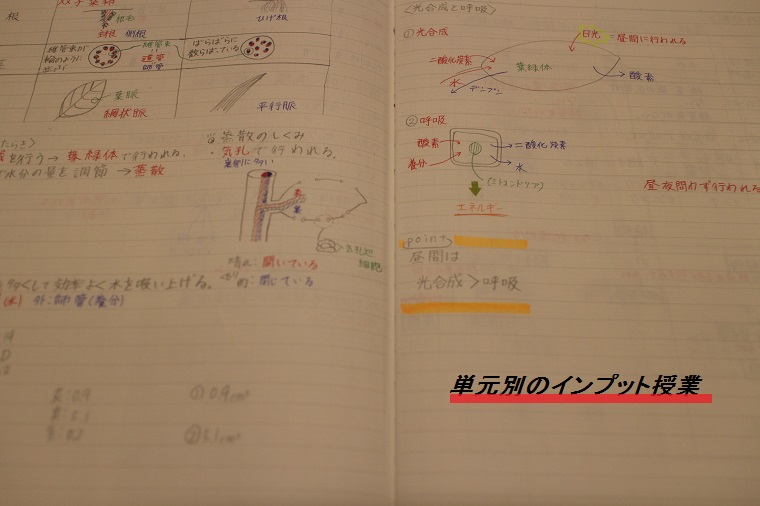 双子葉類
根
主根 側根
ひげ根
維管束が
輪のように
維管束
道管
師管
ばらばらに
散らばっている
葉脈
網状脈
平行脈
を行う→葉緑体で行われる。
水分の量を調節→蒸散
蒸散のしくみ
・気孔で行われる。
裏側に多い
晴れ:開いている
閉じている
気孔
細胞
多くして効率よく水を吸い上げる。
(水) 外:師管(養分)
葉:0.9
① 0.9cm³
<光合成と呼吸>
①光合成
日光=昼間に行われる
二酸化炭素
水
葉緑体
デンプン
酸素
②呼吸
酸素
養分
二酸化炭素
水
(ミトコンドリア)
エネルギー
昼夜問わず行われる
point
昼間は
光合成>呼吸
単元別のインプット授業